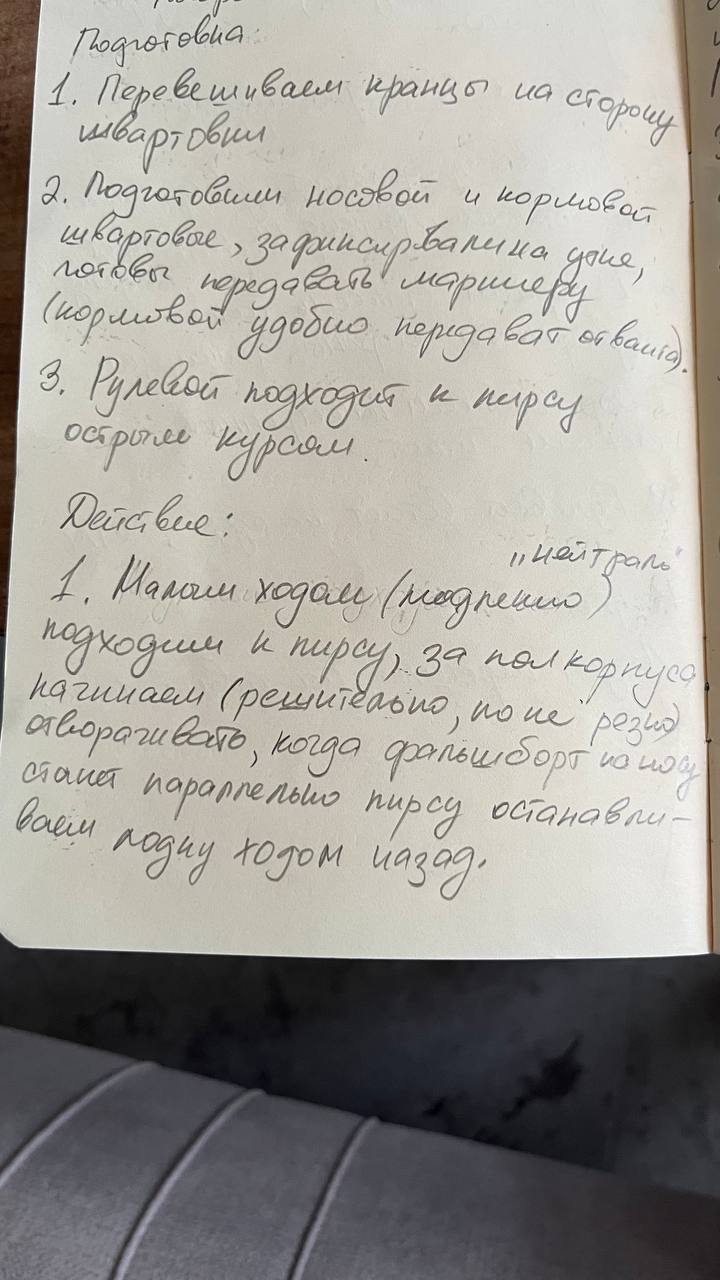 Подготовка:
1. Перевешиваем кранцы на сторону
швартовки
2. Подготовили носовой и кормовой
швартовые, зафиксировали на утке,
готовы передавать маринеру
(кормовой удобно передават от ванта).
3. Рулевой подходит к пирсу
острым курсом.
Действие:
"нейтраль"
1. Малым ходом (медленно)
подходим к пирсу, за полкорпуса
начинаем (решительно, но не резко)
отворачивать, когда фальшборт на носу
станет параллельно пирсу останавли-
ваем лодку ходом назад.